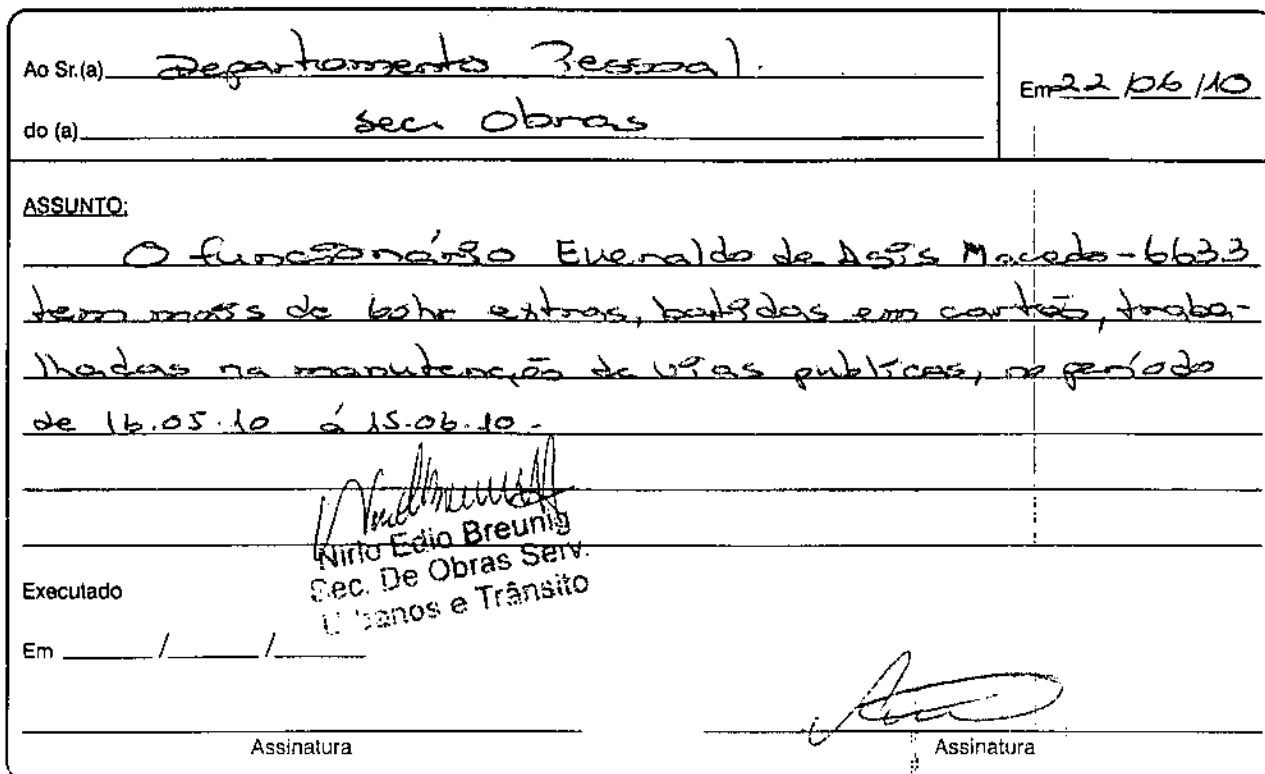 Ao Sr.(a) Departamento Pessoal.
Em 22/06/10
do (a) Sec. Obras
ASSUNTO:
O funcionário Evenaldo de Asis Macedo - 6633
tem mais de 60hr extras, batidas em cartão, traba-
lhadas na manutenção de vias publicas, no período
de 16.05.10 á 15.06.10.
Nirio Edio Breunig
Sec. De Obras Serv.
Urbanos e Trânsito
Executado
Em ____/____/____
Assinatura
Assinatura